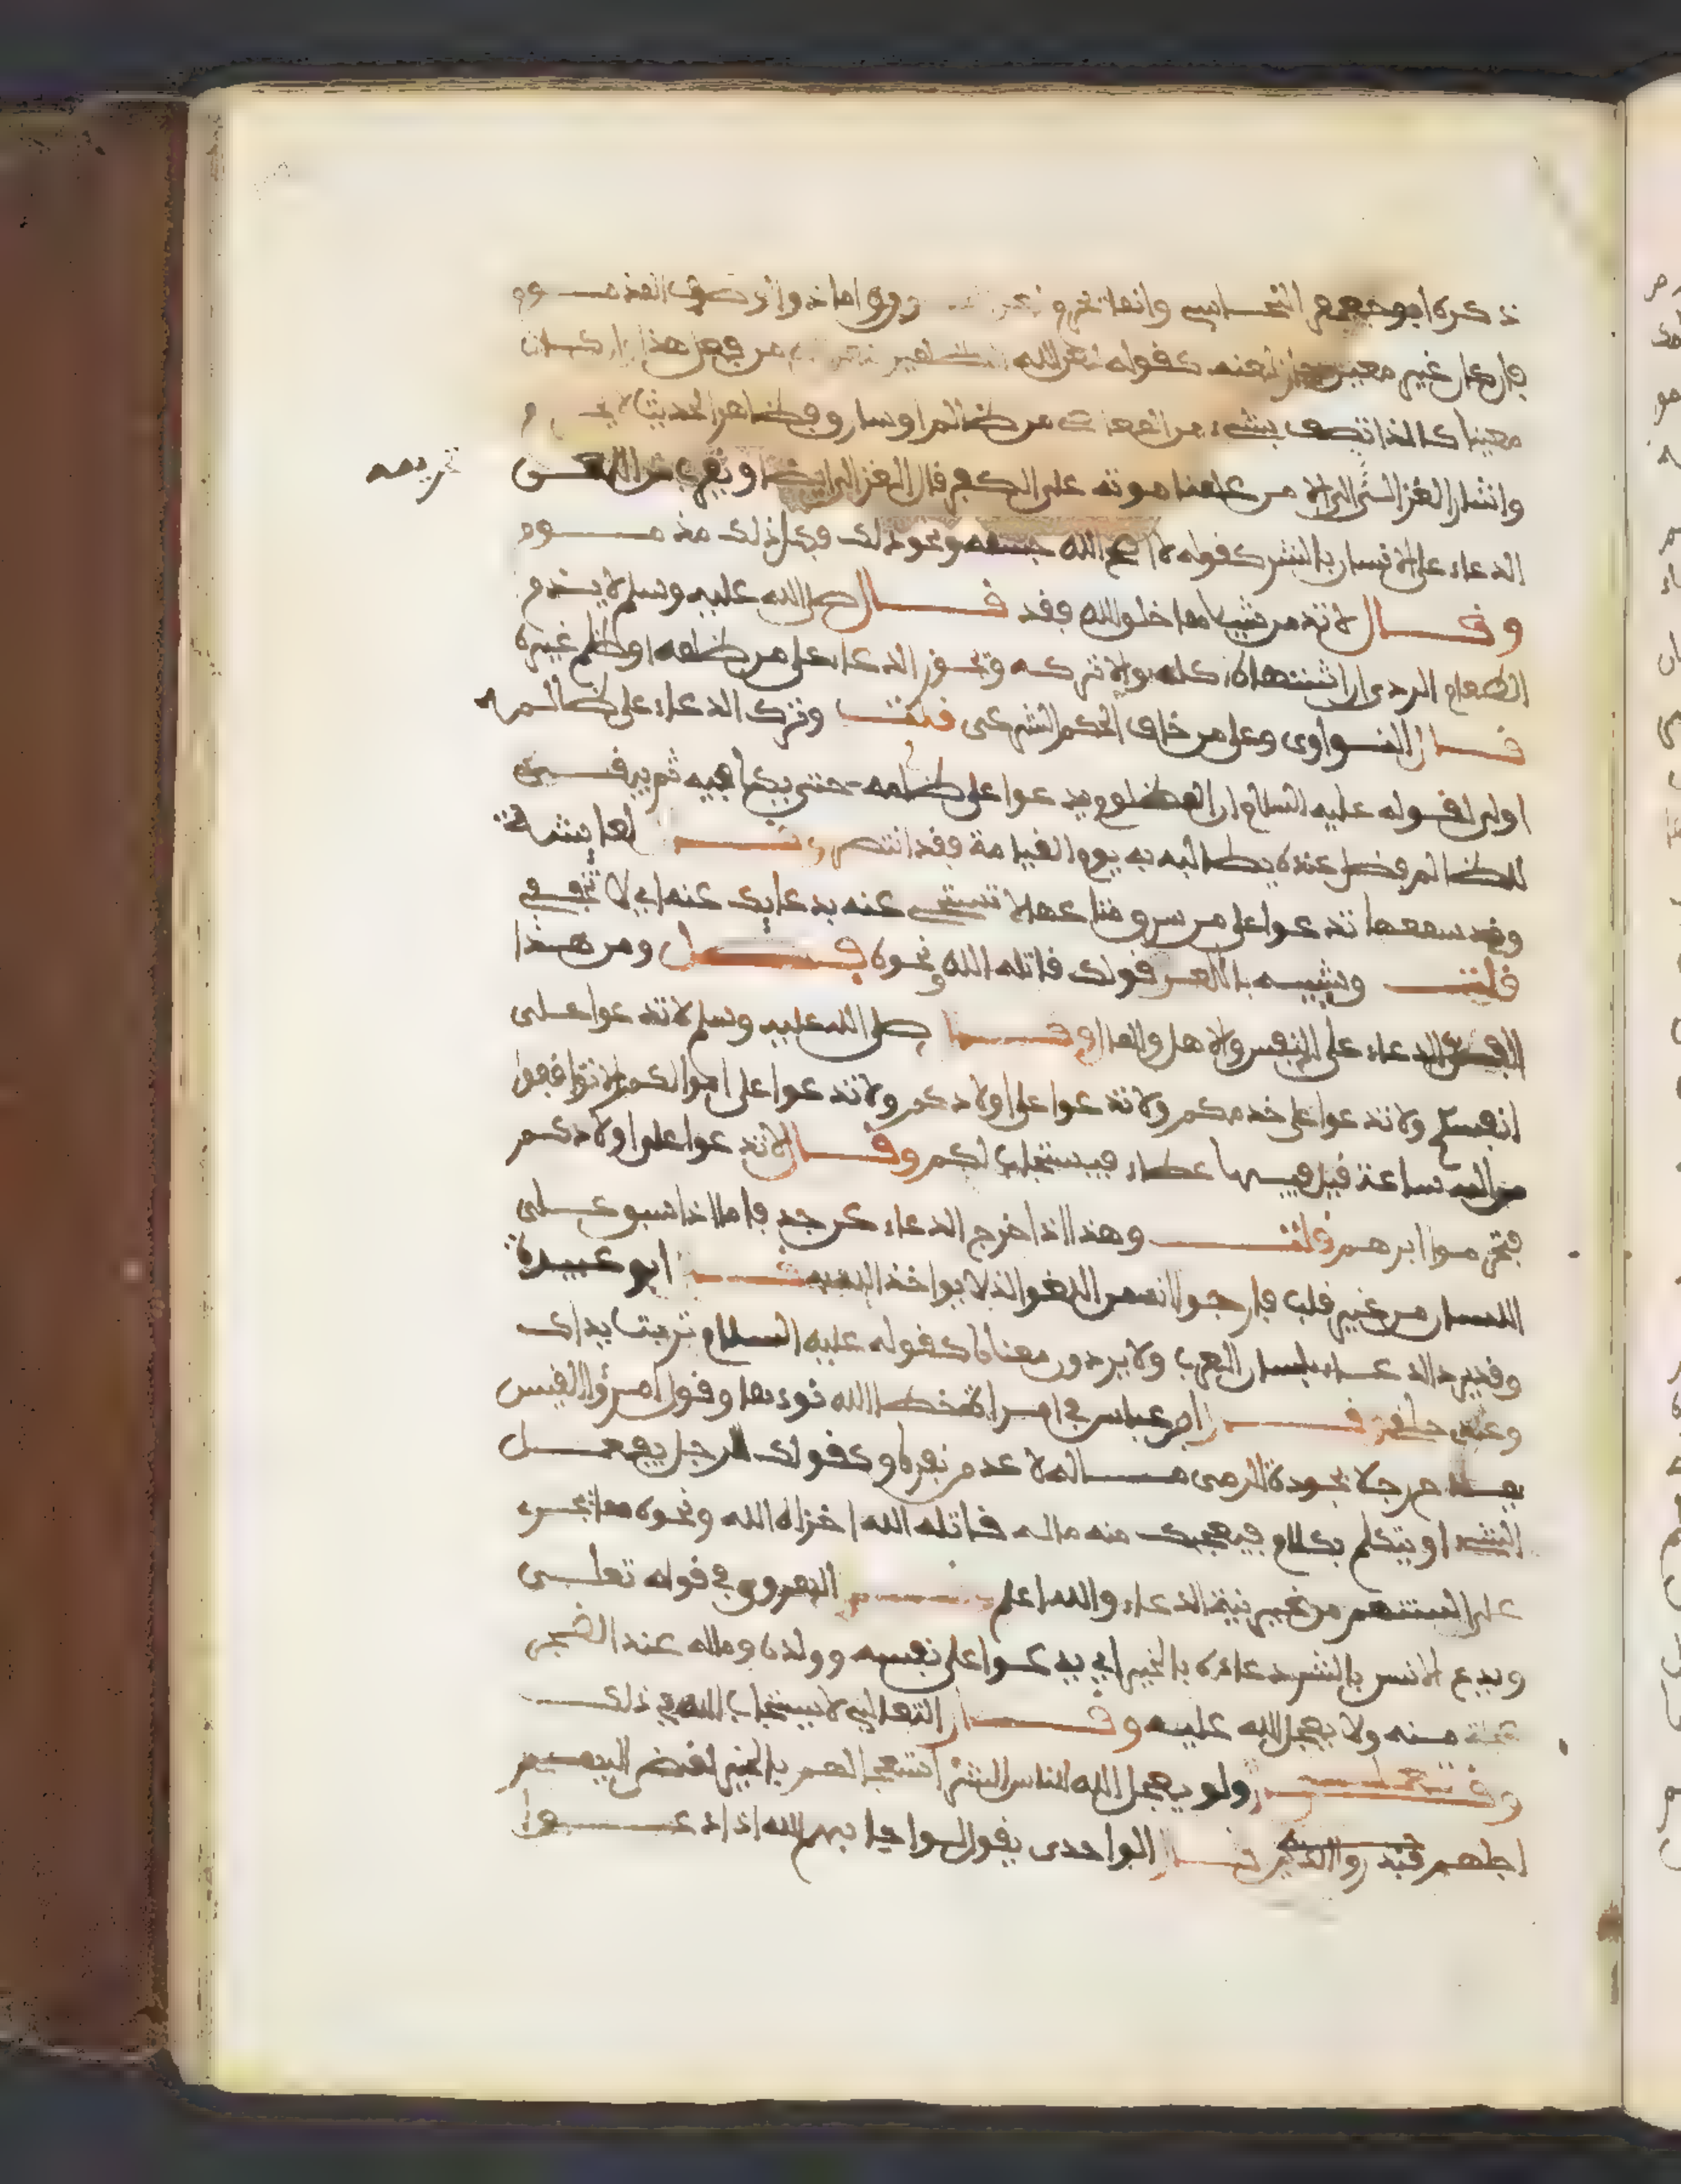 ذكره ابو جعفر النحاس وانما تحرم لعن ... اما ذوا الوصف المذموم
فان كان غير معين جاز لعنه كقوله لعن الله الظالمين ... من فعل هذا وان كان
معينا كالذا تصف بشيء من المعاصي من ظالم او سارق فظاهر الحديث لا يحرم
واشار الغزالي الى تحريمه الا من علمنا موته على الكفر قال الغزالي ايضا ويقرب من اللعن
الدعاء على الانسان بالشر كقوله لا اصح الله جسمه ونحو ذلك فكل ذلك مذموم
وقال لا تذم من شيا مما خلق الله فقد قال صلى الله عليه وسلم لا يذم
الطعام الردى ان اشتهاه اكله والا تركه ويجوز الدعاء على من ظلمه او ظلم غيره
قال النواوى وعلى من خالف الحكم الشرعى قلت وترك الدعاء على ظالمه
اولى لقوله عليه السلام ان المظلوم يدعوا على ظالمه حتى يكافيه ثم يبقى
للظالم فضل عنده يطالبه به يوم القيامة فقد انتصر وقال لعايشة
وقد سمعها تدعوا على من سرق متاعها لا تستجي عنه بدعايك عنه اي لا تخففي
قلت ويشبه باللعن قولك قاتله الله ونحوه فصل ومن هذا
الفصل الدعاء على النفس والاهل والمال وقال صلى الله عليه وسلم لا تدعوا على
انفسكم ولا تدعوا على خدمكم ولا تدعوا على اولادكم ولا تدعوا على اموالكم لا توافقوا
من الله ساعة قيل فيها عطاء فيستجاب لكم وقال لا تدعوا على اولادكم
فتحرموا ابرهم قلت وهذا اذا خرج الدعاء عن جد فاما اذا سبق على
اللسان من غير قلب فارجوا انه من اللغو الذ لا يواخذ الله به قال ابو عبيدة
وقد يرد الدعاء بلسان العرب ولا يردون معناه كقوله عليه السلام تربت يداك
وعقرى حلقى قال ابن عباس في امراة خطا الله نوءها وقول امرؤ القيس
يمدح رجلا بجودة الرمى ماله لا عد من نفره وكقولك للرجل يفعل
الشيء او يتكلم بكلام فيعجبك منه ماله قاتله الله اخزاه الله ونحوه مما تجري
على السنتهم من غير نية الدعاء والله اعلم قال الهروي في قوله تعلى
ويدع الانس بالشر دعاءه بالخير اي يدعوا على نفسه وولده وماله عند الضجر
عجلة منه ولا يعجل الله عليه وقال الثعالبي لا يستجاب الله في ذلك
وفي تعلى ولو يعجل الله للناس الشر استعجالهم بالخير لقضى اليهم
اجلهم فنذر الذين قال الواحدى يقول لو اجابهم الله اذا دعوا